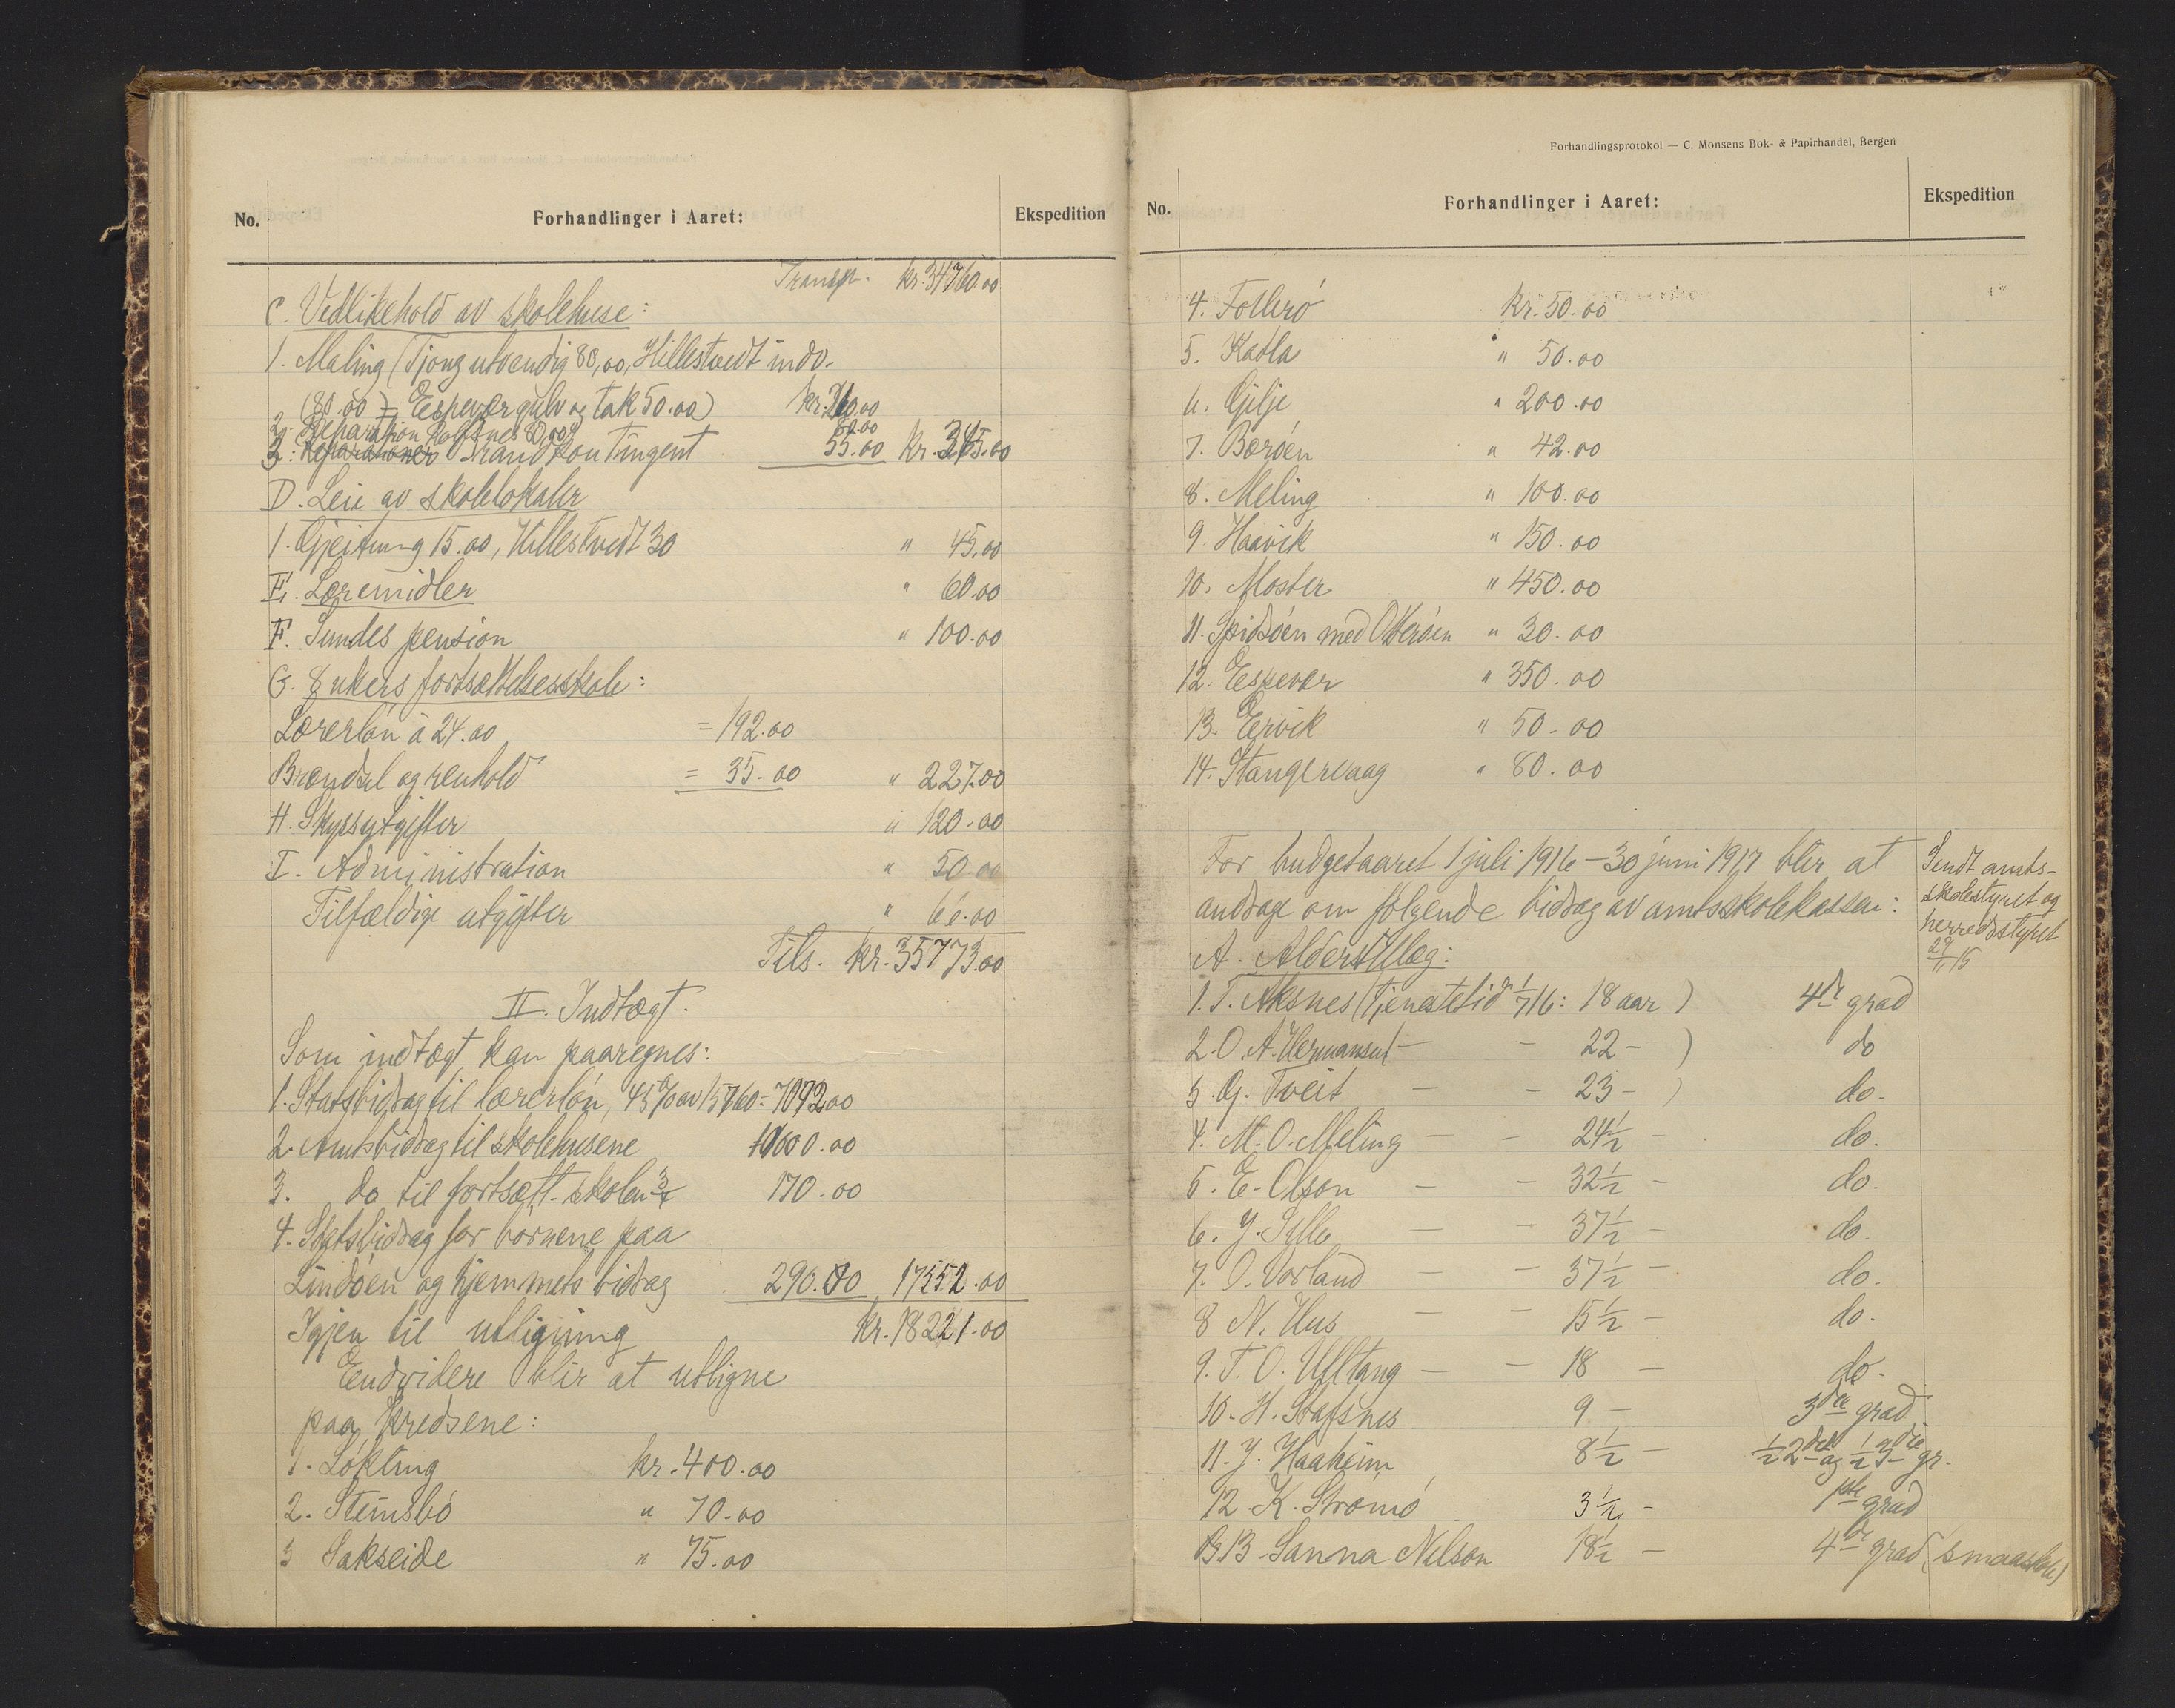 No.
Forhandlinger i Aaret:
Ekspedition
Transp. kr. 34760.00
C. Vedlikehold av skolehuse:
1. Maling (Tjong utvendig 80,00, Hillestvedt indv.
(80.00) = Espevær gulv og tak 50.00) kr. 210.00
2. Reparation 80,00 80.00
3: Reparationer Brandkontingent 55.00 kr. 345.00
D. Leie av skolelokaler
1. Gjeitung 15.00, Hillestvedt 30 " 45.00
E. Læremidler " 60.00
F. Sundes pension " 100.00
G. 8 ukers fortsættelsesskole:
Lærerløn à 24.00 = 192.00
Brændsel og renhold = 35.00 " 227.00
H. Skyssutgifter " 120.00
I. Administration " 50.00
Tilfældige utgifter " 66.00
Tils. kr. 35773.00
II. Indtægt.
Som indtægt kan paaregnes:
1. Statsbidrag til lærerløn, 45% av 15760 = 7092.00
2. Amtsbidrag til skolehusene 10000.00
3. do til fortsætt. skolen 3/4 170.00
4. Statsbidrag for børnene paa
Lindøen og hjemmets bidrag 290.00 17552.00
Igjen til utligning kr. 18221.00
Endvidere blir at utligne
paa kredsene:
1. Løkling kr. 400.00
2. Steinsbø " 70.00
3 Sakseide " 75.00
Forhandlingsprotokol — C. Monsens Bok- & Papirhandel, Bergen
No.
Forhandlinger i Aaret:
Ekspedition
4. Follerø kr. 50.00
5. Katla " 50.00
6. Gilje " 200.00
7. Børøen " 42.00
8. Meling " 100.00
9. Haavik " 150.00
10. Moster " 450.00
11. Spidsøen med Otterøen " 30.00
12. Espevær " 350.00
13. Eervik " 50.00
14. Stangervaag " 80.00
For budgetaaret 1 juli 1916 – 30 juni 1917 blir at
andrage om følgende bidrag av amtsskolekassen:
Sendt amts-
skolestyret og
herredsstyret
29/11 15
A. Alderstillæg:
1. T. Aksnes (Tjenestetid 1/7 16: 18 aar) 4de grad
2. O. A. Hermansen – – 22 – ) do
3. G. Tveit – – 23 – ) do.
4. M. O. Meling – – 24 1/2 – do.
5. E. Olson – – 32 1/2 – do.
6. J. Sylle – – 37 1/2 – do.
7. O. Vorland – – 37 1/2 – do.
8 N. Hus – – 15 1/2 – do.
9. T. O. Ulltang – – 18 – do.
10. H. Stafsnes 9 – 3die grad
11. J. Haaheim 8 1/2 – 1/2 2den og 1/2 3die gr.
12. K. Strømø 3 1/2 – 1ste grad
13 Sanna Nilson 18 1/2 – 4de grad (smaaskole)